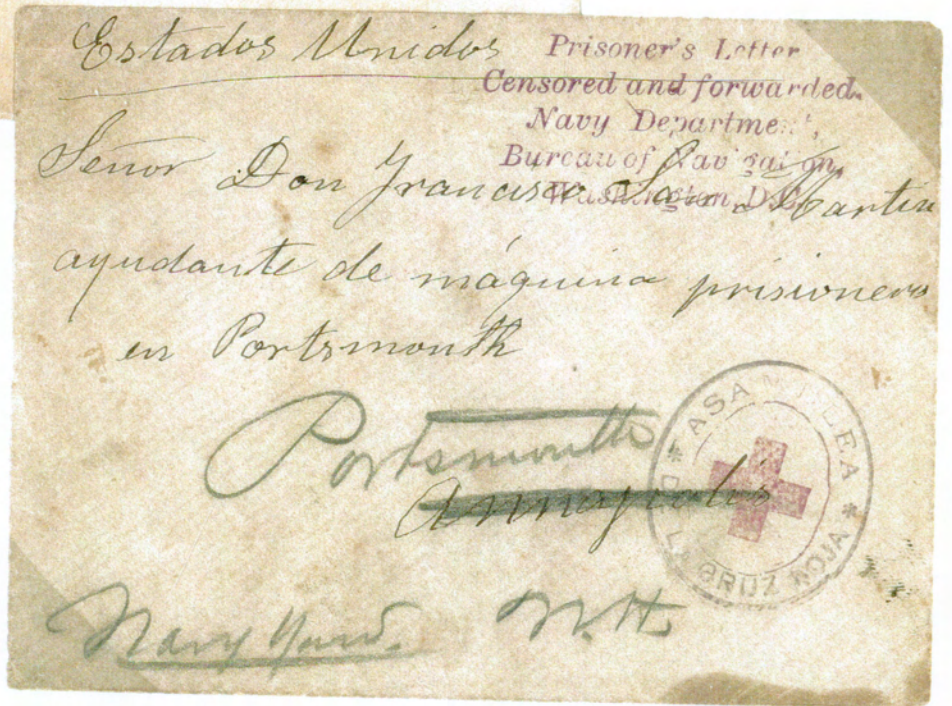 Estados Unidos
Prisoner's Letter
Censored and forwarded.
Navy Department,
Bureau of Navigation,
Washington, D.C.
Señor Don Francisco San Martin
ayudante de máquina prisionero
en Portsmouth
Portsmouth
Annapolis
Navy Yard. N.H.
* ASAMBLEA *
DE LA CRUZ ROJA